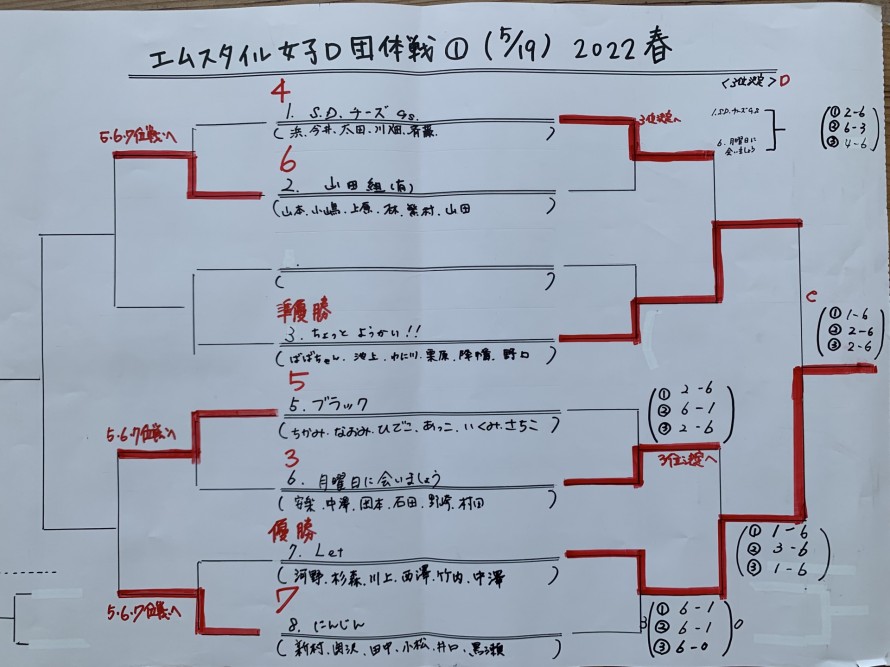 エムスタイル 女子D 団体戦 ① (5/19) 2022 春
<3位決定> D
4
1. S.D. チーズ 9s.
(浜、今井、太田、川畑、斉藤)
5・6・7位戦へ
3位決定へ
1.S.D.チーズ9s
6. 月曜日に会いましょう
① 2-6
② 6-3
③ 4-6
6
2. 山田組(有)
(山本、小嶋、上原、林、繁村、山田)
( )
準優勝
3. ちょっと ようかい!!
(ばばちゃん、池上、わに川、栗原、降幡、野口)
C
① 1-6
② 2-6
③ 2-6
5
5. ブラック
(ちかみ、なおみ、ひでこ、あっこ、いくみ、さちこ)
① 2-6
② 6-1
③ 2-6
5・6・7位戦へ
3位決定へ
3
6. 月曜日に会いましょう
(安楽、中澤、岡本、石田、野崎、村田)
優勝
7. Let
(河野、杉森、川上、西澤、竹内、中澤)
① 1-6
② 3-6
③ 1-6
5・6・7位戦へ
7
8. にんじん
(新村、田中、小松、井口、黒瀬)
3
① 6-1
② 6-1
③ 6-0
0